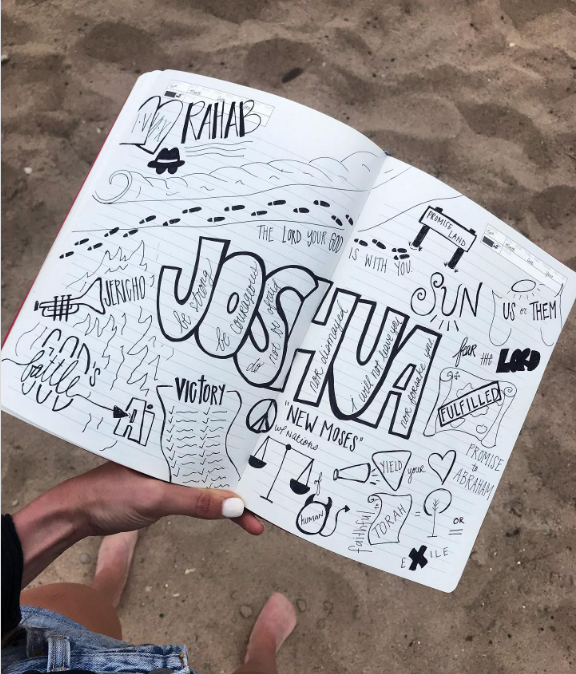 RAHAB
THE LORD YOUR GOD
IS WITH YOU.
PROMISE
LAND
JERICHO
JOSHUA
be strong
be courageous
do not be afraid
nor dismayed
i will not leave you
nor forsake you
SUN
US or THEM
fear THE LORD
GOD'S
battle
Ai
VICTORY
"NEW MOSES"
w/ Nations
FULFILLED
PROMISE
to
ABRAHAM
YIELD your
of
HUMAN
faithful
TORAH
=
OR
=
EXILE